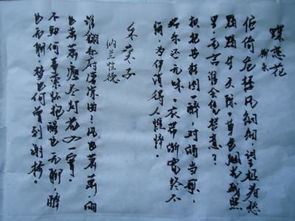 蝶恋花
柳永
伫倚危楼风细细，望极春愁，
黯黯生天际。草色烟光残照
里，无言谁会凭阑意？
拟把疏狂图一醉，对酒当歌，强
乐还无味。衣带渐宽终不
悔，为伊消得人憔悴。
采桑子
纳兰性德
谁翻乐府凄凉曲？风也萧萧，雨
也萧萧，瘦尽灯花又一宵。
不知何事萦怀抱，醒也无聊，醉
也无聊，梦也何曾到谢桥。